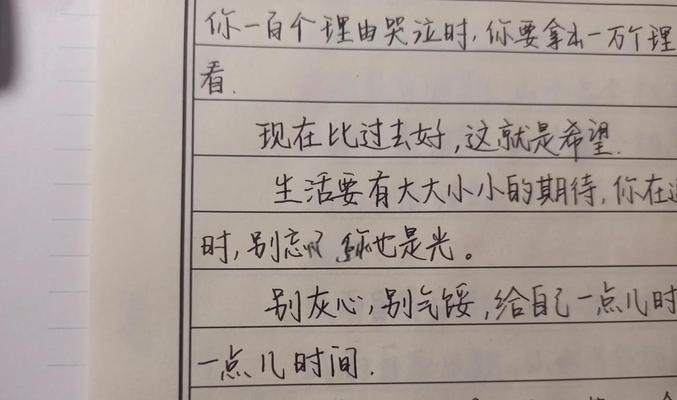 你一百个理由哭泣时,你要拿出一万个理
看.
现在比过去好,这就是希望.
生活要有大大小小的期待,你在
时,别忘了你也是光。
别灰心,别气馁,给自己一点儿时
一点儿时间.